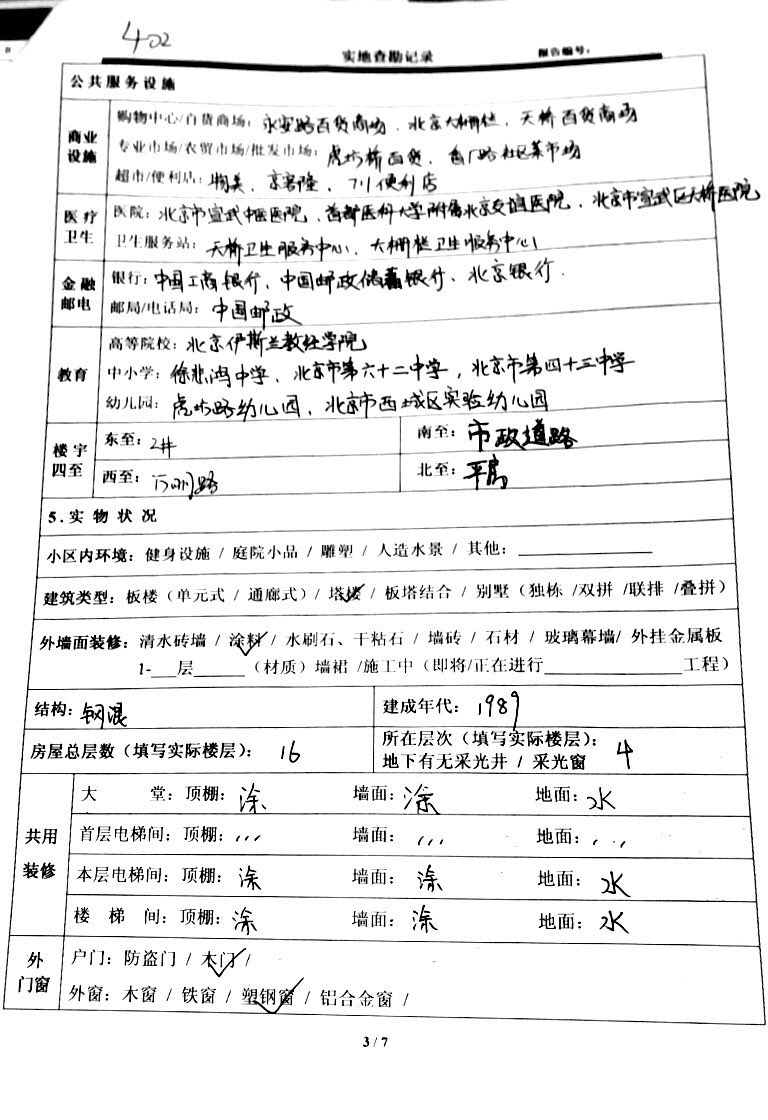 402
实地查勘记录 报告编号:
公共服务设施
商业设施
购物中心/百货商场: 永安路百货商场、北京大栅栏、天桥百货商场
专业市场/农贸市场/批发市场: 虎坊桥百货、香厂路社区菜市场
超市/便利店: 物美、京客隆、711便利店
医疗卫生
医院: 北京市宣武中医医院、首都医科大学附属北京友谊医院、北京市宣武区天桥医院
卫生服务站: 天桥卫生服务中心、大栅栏卫生服务中心
金融邮电
银行: 中国工商银行、中国邮政储蓄银行、北京银行.
邮局/电话局: 中国邮政
教育
高等院校: 北京伊斯兰教经学院
中小学: 徐悲鸿中学、北京市第六十二中学、北京市第四十三中学
幼儿园: 虎坊路幼儿园、北京市西城区实验幼儿园
楼宇四至
东至: 2# 南至: 市政道路
西至: 路 北至: 平房
5.实物状况
小区内环境: 健身设施 / 庭院小品 / 雕塑 / 人造水景 / 其他:
建筑类型: 板楼(单元式 / 通廊式)/ 塔楼 / 板塔结合 / 别墅(独栋 /双拼 /联排 /叠拼)
外墙面装修: 清水砖墙 / 涂料 / 水刷石、干粘石 / 墙砖 / 石材 / 玻璃幕墙/ 外挂金属板
1-___层______(材质)墙裙 /施工中(即将/正在进行____________工程)
结构: 钢混 建成年代: 1989
房屋总层数(填写实际楼层): 16 所在层次(填写实际楼层): 4
地下有无采光井 / 采光窗
共用装修
大堂: 顶棚: 涂 墙面: 涂 地面: 水
首层电梯间: 顶棚: ,,, 墙面: ,,, 地面: ,,,
本层电梯间: 顶棚: 涂 墙面: 涂 地面: 水
楼梯间: 顶棚: 涂 墙面: 涂 地面: 水
外门窗
户门: 防盗门 / 木门 /
外窗: 木窗 / 铁窗 / 塑钢窗 / 铝合金窗 /
3 / 7